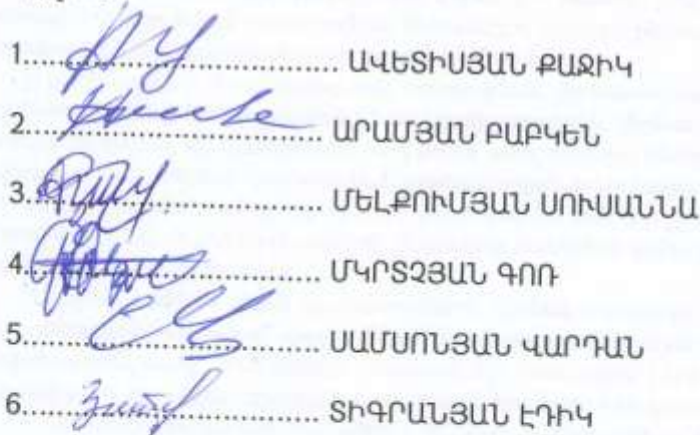 1........................ ԱՎԵՏԻՍՅԱՆ ՔԱՋԻԿ
2........................ ԱՐԱՄՅԱՆ ԲԱԲԿԵՆ
3........................ ՄԵԼՔՈՒՄՅԱՆ ՍՈՒՍԱՆՆԱ
4........................ ՄԿՐՏՉՅԱՆ ԳՈՌ
5........................ ՍԱՄՍՈՆՅԱՆ ՎԱՐԴԱՆ
6........................ ՏԻԳՐԱՆՅԱՆ ԷԴԻԿ